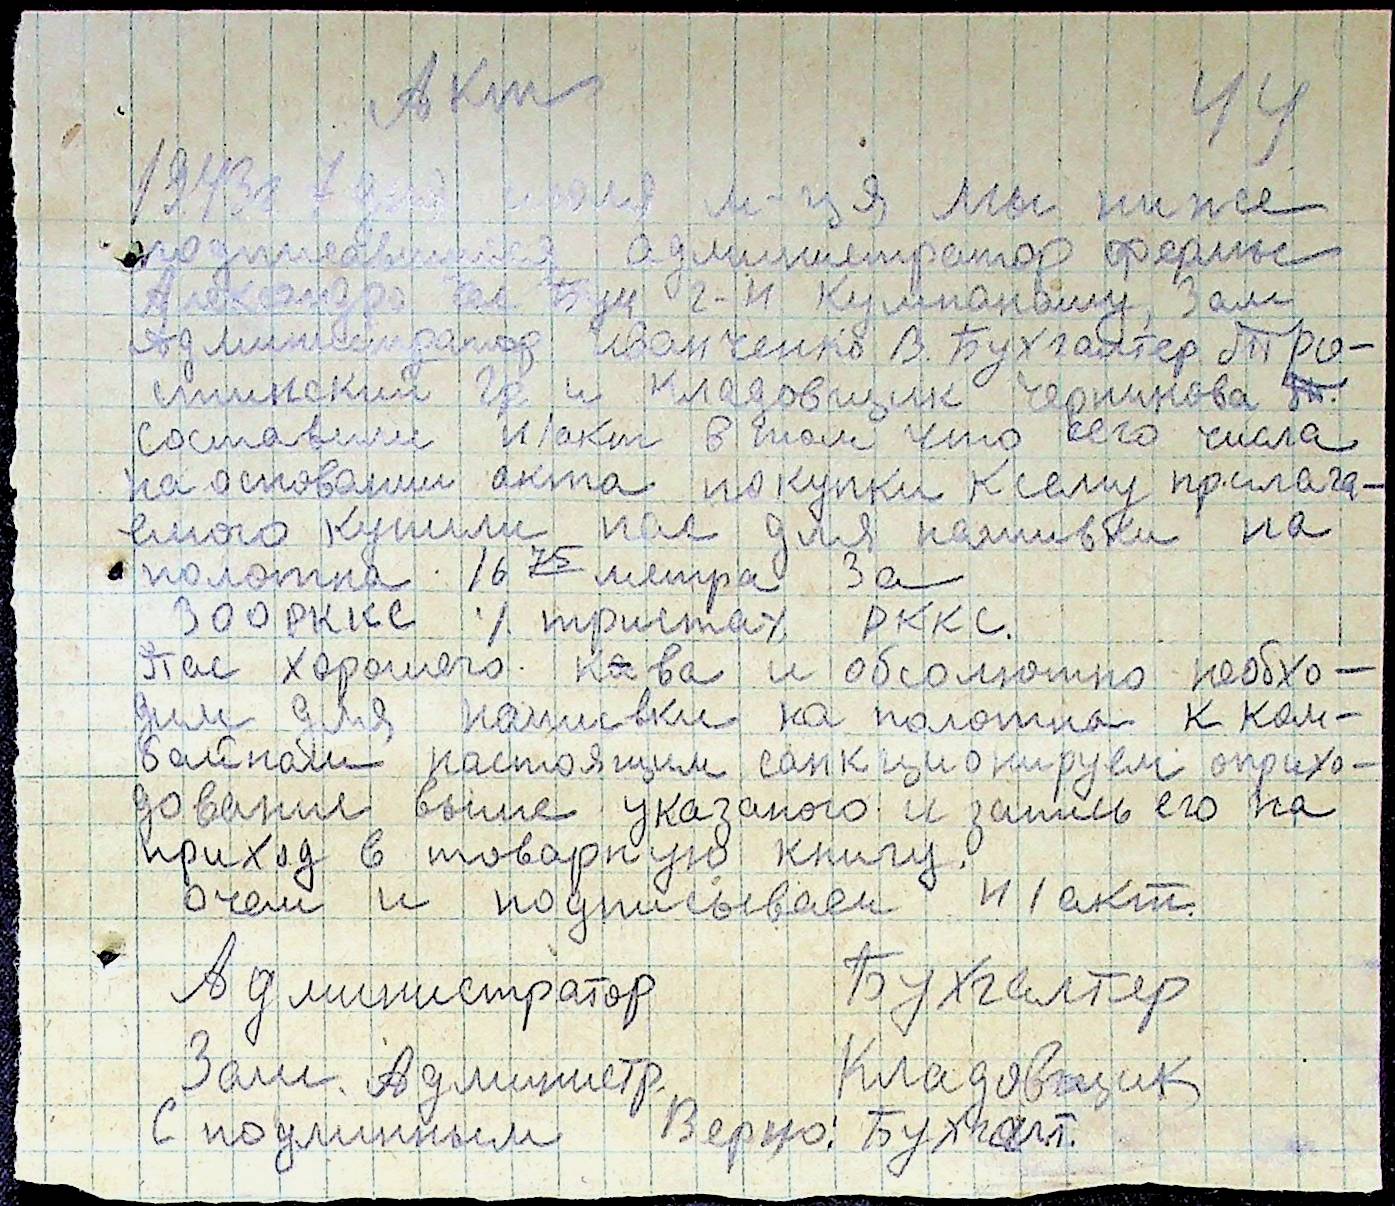 Акт 44
1943г 7 дня июля м-ця мы ниже
подписавшиеся администратор фермы
Александро г-н Кумпанашу, Зам
Администратор Иванченко В. Бухгалтер
стинский Гр и кладовщик Чернинова
составили н/акт в том что сего числа
на основании акта покупки к сему прилага-
емого купили пас для нашивки на
полотна 16 75 метра За
300 РККС ·/. триста ·/. РККС.
Пас хорошего к-ва и обсолютно необхо-
дим для нашивки на полотна к ком-
байнам настоящим санкционируем оприхо-
дование выше указаного и запись его на
приход в товарную книгу.
очем и подписываем н/акт.
Администратор Бухгалтер
Зам. Администр. Кладовщик
С подлинным Верно: Бухгалт.